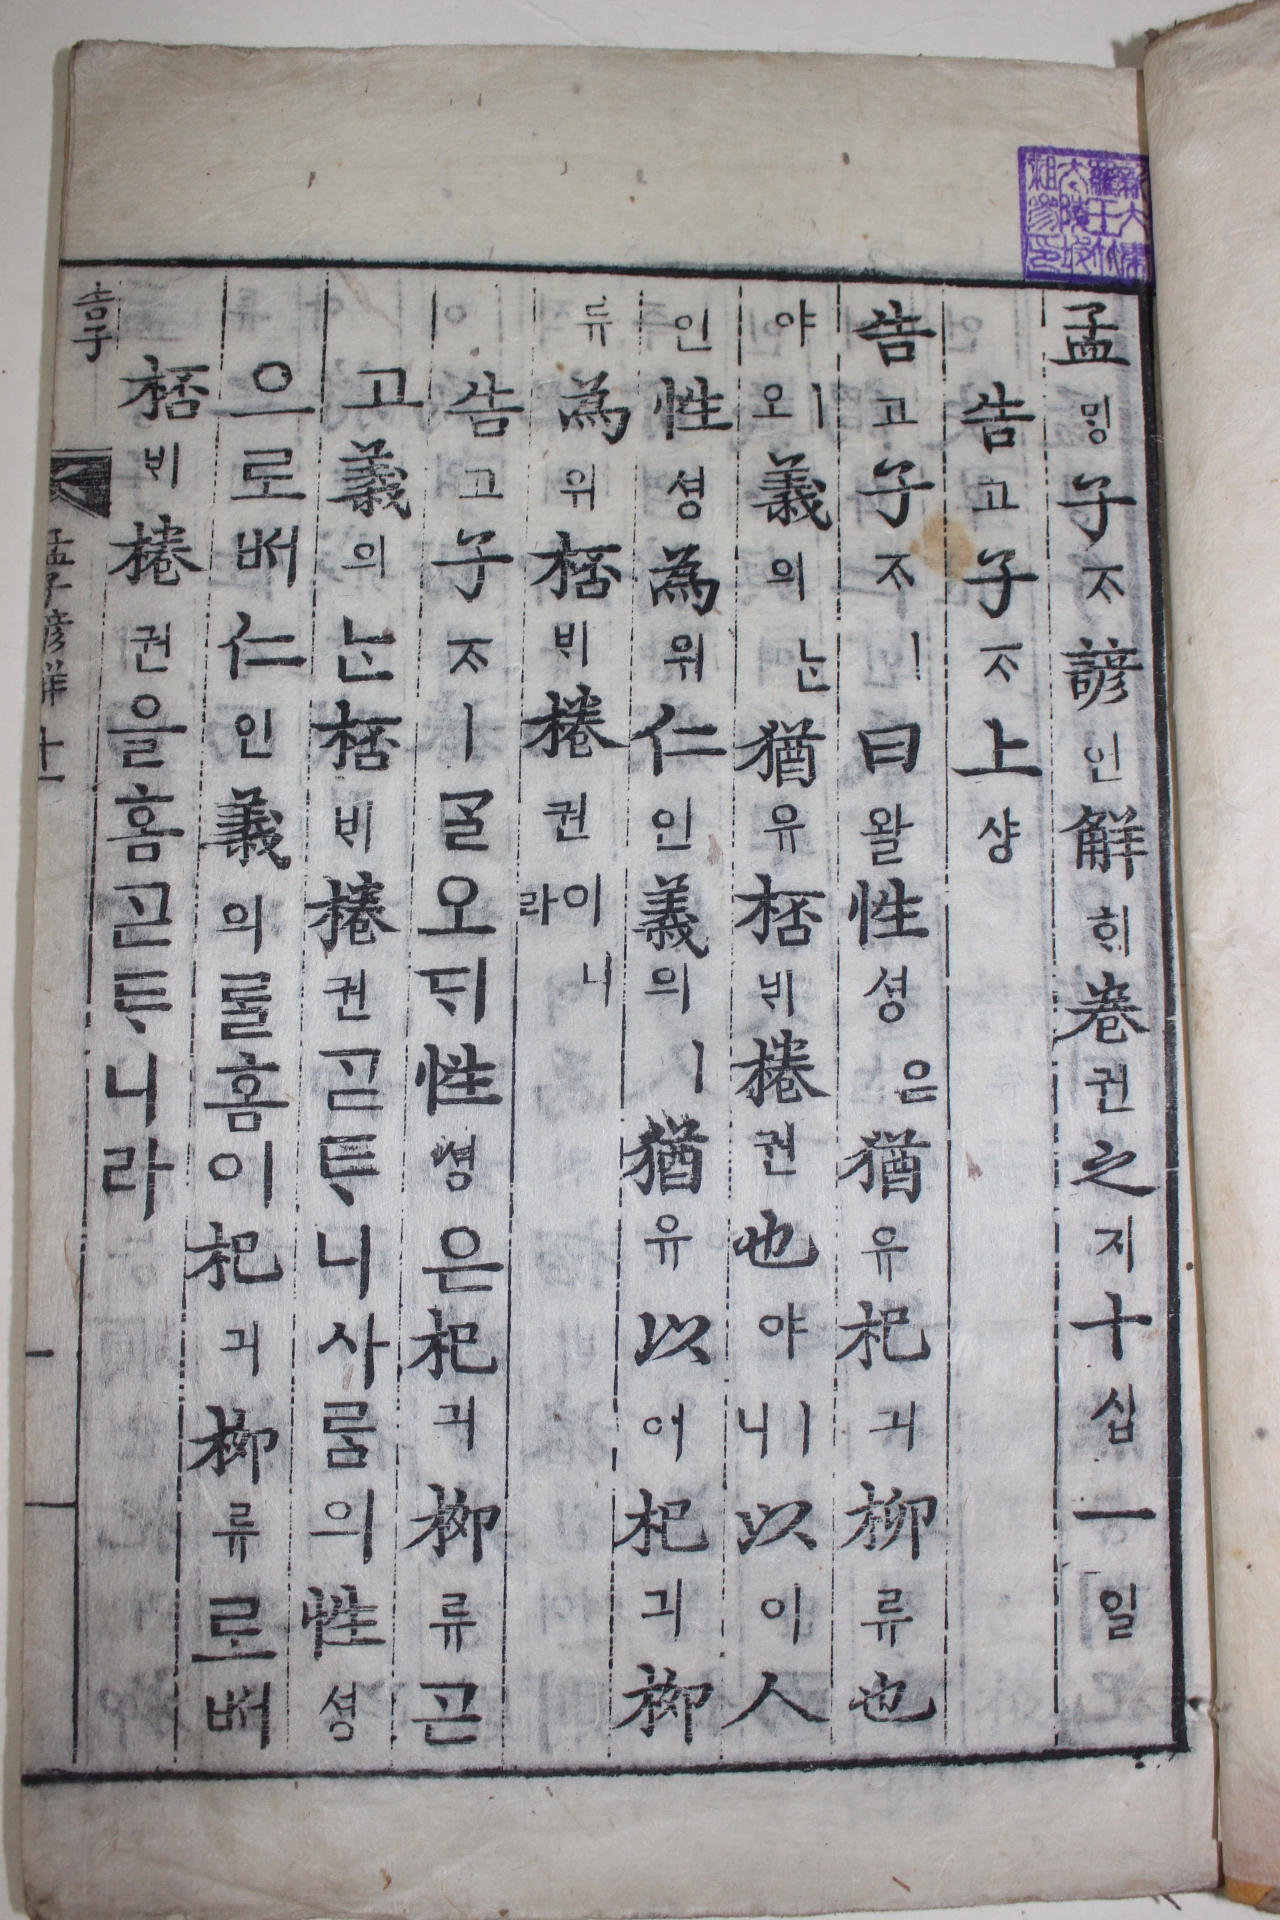 孟ᄆᆡᆼ子ᄌᆞ諺언解ᄒᆡ卷권之지十십一일
告고子ᄌᆞ上샹
告고子ᄌᆞㅣ曰왈性셩은猶유杞긔柳류也
야ㅣ오義의ᄂᆞᆫ猶유桮ᄇᆡ棬권也야ㅣ니以이人
인性셩爲위仁인義의ㅣ猶유以이杞긔柳
류爲위桮ᄇᆡ棬권이니라
告고子ᄌᆞㅣᄀᆞᆯ오ᄃᆡ性셩은杞긔柳류ᄀᆞᆮ
고義의ᄂᆞᆫ桮ᄇᆡ棬권ᄀᆞᆮᄐᆞ니사ᄅᆞᆷ의性셩
으로ᄡᅥ仁인義의ᄅᆞᆯ홈이杞긔柳류로ᄡᅥ
桮ᄇᆡ棬권을홈ᄀᆞᆮᄐᆞ니라
告子
孟子諺解 十一
一